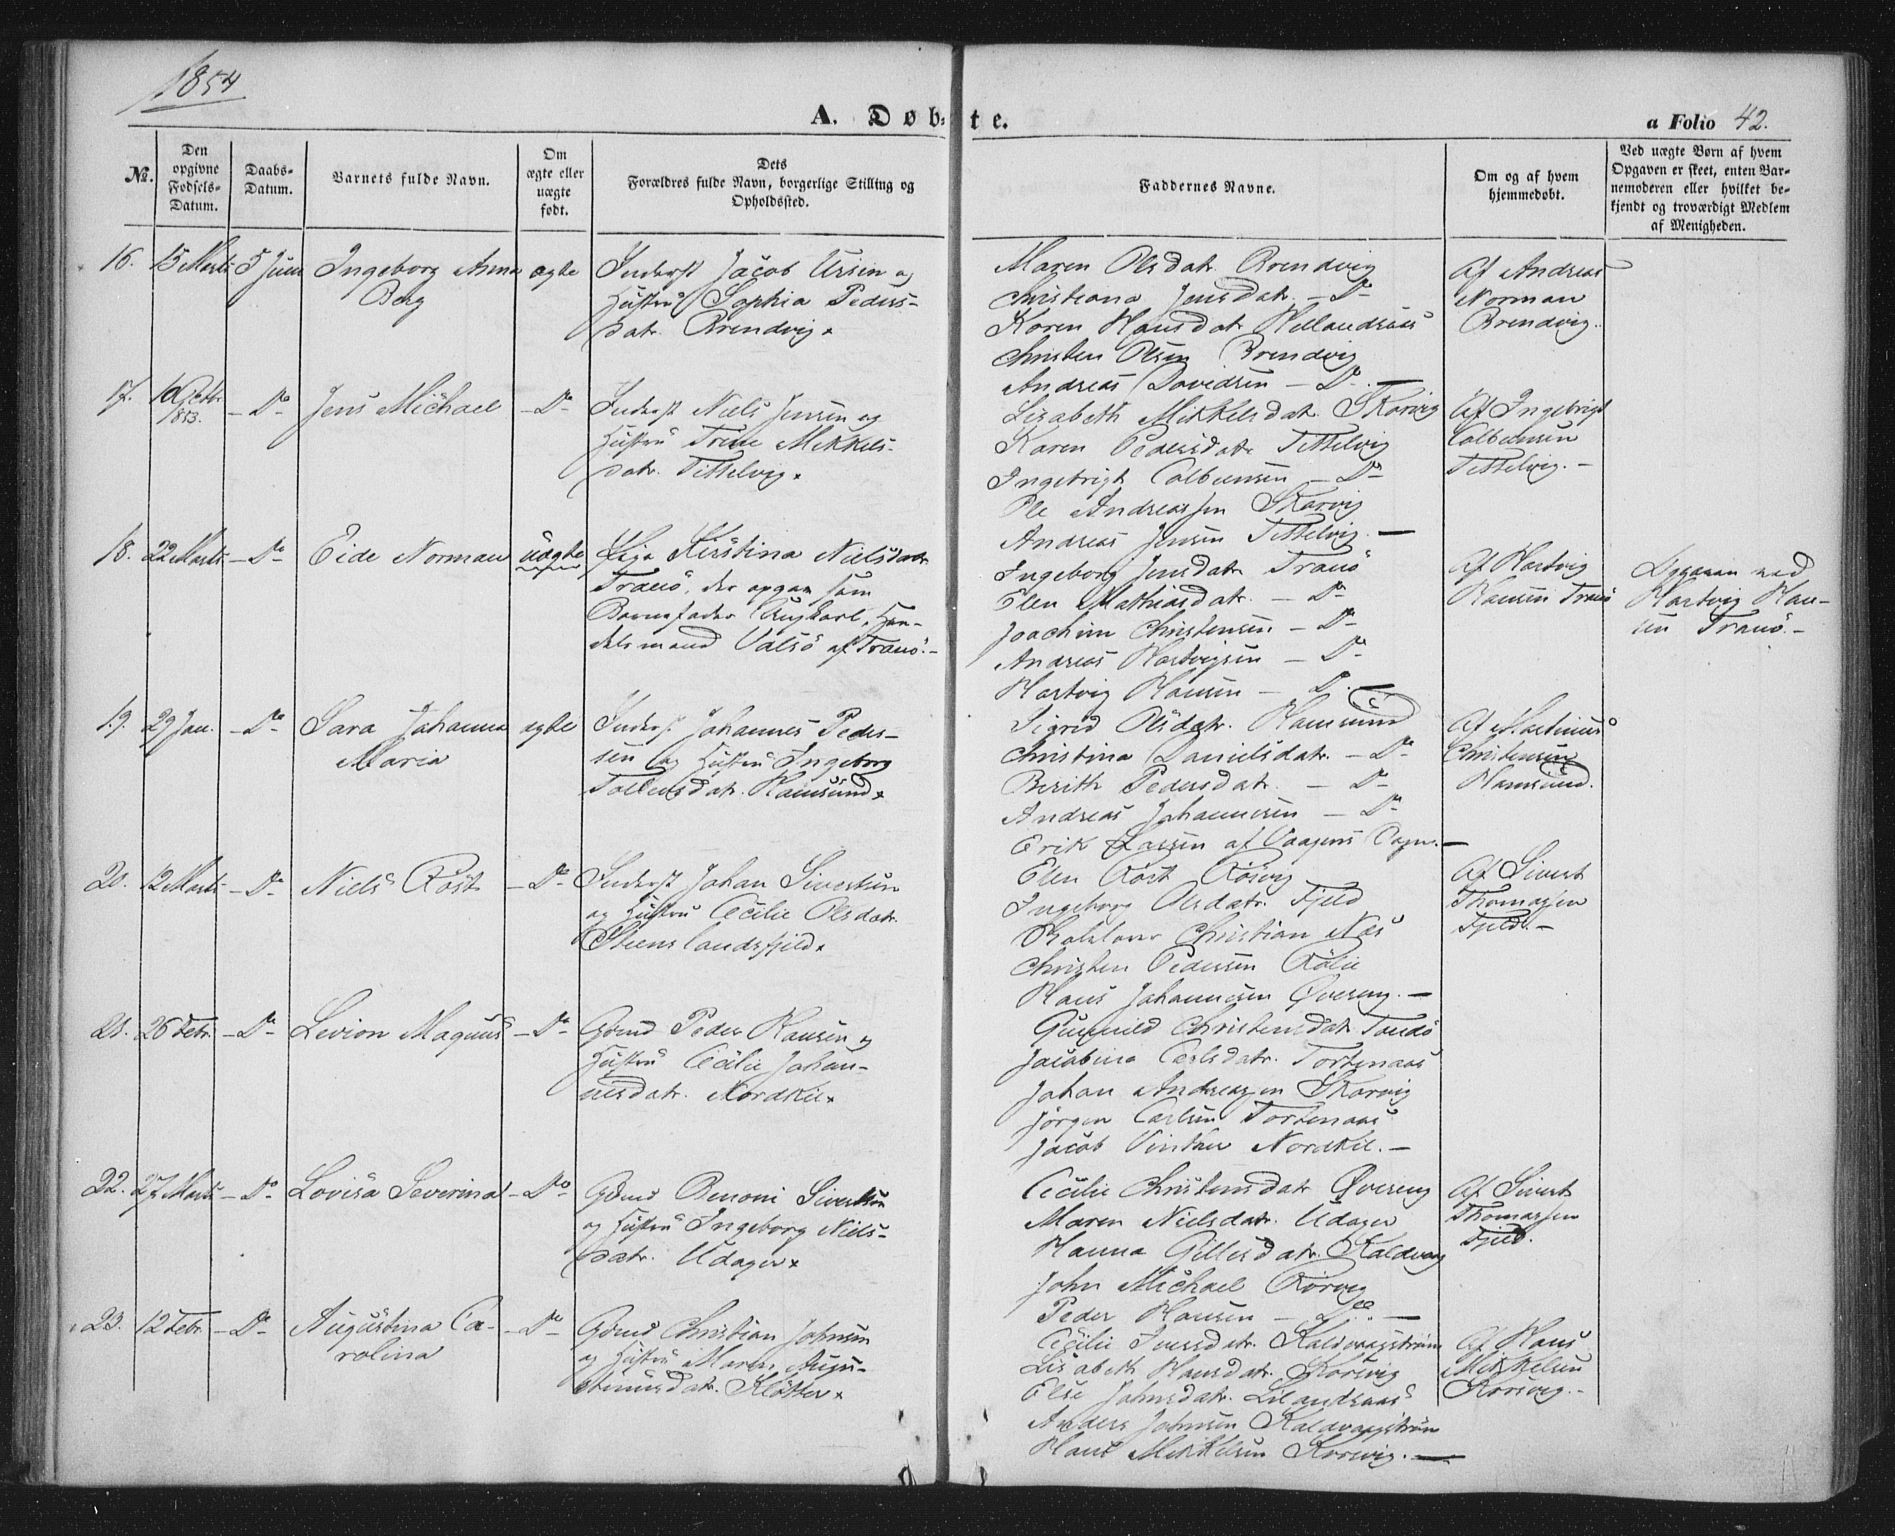 1854
A. Døbte.
a Folio 42.
No.
Den opgivne Fødsels-Datum.
Daabs-Datum.
Barnets fulde Navn.
Om ægte eller uægte født.
Dets Forældres fulde Navn, borgerlige Stilling og Opholdssted.
Faddernes Navne.
Om og af hvem hjemmedøbt.
Ved uægte Børn af hvem Opgaven er skeet, enten Barnemoderen eller hvilket bekjendt og troværdigt Medlem af Menigheden.
16. 15 Marts 5 Juni Ingeborg Anna ægte Inderst Jacob Ursin og
Berg Hustru Sophia Peders-
datr. Brendvig
Maren Olsdatr. Brendvig
Christiana Jensdatr. - Do
Karen Hansdatr Hellandsaas
Christen Olsen Brendvig
Andreas Davidsen - Do. -
Af Andreas
Norman
Brendvig.
17. 1853. - Do Jens Michael - Do Inderst Niels Jensen og
Hustru Trine Mikkels-
datr. Tittelvig
Lisabeth Mikkelsdatr. Skarvig
Karen Pedersdatr Tittelvig
Ingebrigt Colbeensen - Do
Ole Andreassen Skarvig
Andreas Jensen Tittelvig. -
Af Ingebrigt
Colbeensen
Tittelvig. -
18. 22 Marts - Do Eide Norman uægte Pige Kirstina Nielsdatr
Tranö, der opgav som
Barnefader Ungkarl, Han-
delsmand Valsö af Tranö. -
Ingeborg Jensdatr Tranö
Elen Mathiasdatr. - Do
Joachim Christensen - Do
Andreas Hartvigsen - Do
Hartvig Hansen - Do. -
Af Hartvig
Hansen Tranö
Opgaven ved
Hartvig Han-
sen Tranö. -
19. 29 Jan. - Do Sara Johanna ægte Inderst Johannes Peder-
Maria sen og Hustru Ingeborg
Tollensdatr. Hamsund
Sigrid Olsdatr. Hamsund
Christina Danielsdatr. - Do
Berith Pedersdatr. - Do
Andreas Johannesen - Do
Erik Larsen af Vaagens Sogn. -
Af Martinus
Christensen
Hamsund.
20. 12 Marts - Do Niels Röst - Do Inderst Johan Sivertsen
og Hustru Cecilie Olsdatr.
Steenslandsfjeld
Elen Röst Rösvig
Ingeborg Olsdatr. Fjeld
Christian Næs
Christen Pedersen Rölie
Hans Johannesen Øvereng. -
Af Sivert
Thomassen
Fjeld. -
21. 26 Febr. - Do Levion Magnus - Do Gdmd Peder Hansen og
Hustru Cecilie Johan-
nesdatr. Nordkil
Gunnild Christensdatr Tandö
Jacobina Carlsdatr. Tortenaas
Johan Andreassen Skarvig
Jörgen Carlsen Tortenaas
Jacob Vinther Nordkil. -
22. 27 Marts - Do Lovisa Severina - Do Gdmd Benoni Sivertsen
og Hustru Ingeborg Niels-
datr. Udager
Cecilie Christensdatr Øvereng
Maren Nielsdatr. Udager
Hanna Gillesdatr. Kaldvaag
John Michael Rörvig
Peder Hansen - Do. -
Af Sivert
Thomassen
Fjeld.
23. 12 Febr. - Do Augustina Ca- - Do Gdmd Christian Johnsen
rolina og Hustru Maren Augu-
stinusdatr. Kløtter
Cecilie Iversdatr. Kaldvaagstrøm
Lisabeth Hansdatr. Korsvig
Else Johnsdatr. Lilandsaas
Anders Johnsen Kaldvaagstrøm
Hans Mikkelsen Korsvig. -
Af Hans
Mikkelsen
Korsvig. -